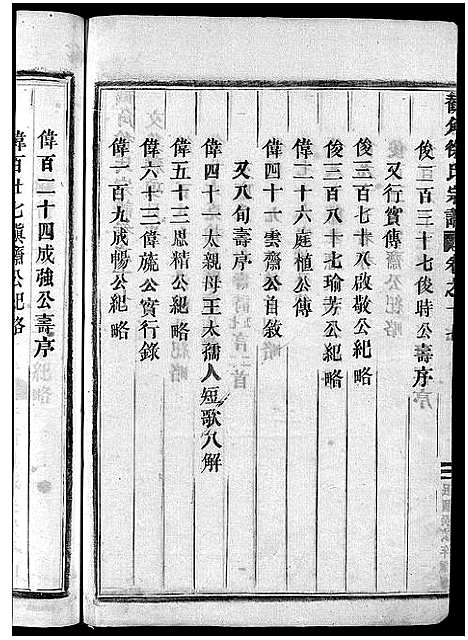 徐氏宗譜
俊二百三十七俊時公壽序
又行賞傳
俊三百七十八啟敬公紀略
俊三百八十七瑜芳公紀略
偉二十六庭植公傳
偉四十一雲齋公自敘
又八旬壽序
偉四十一太親母王太孺人短歌八解
偉五十三恩精公紀略
偉六十三偉旄公實行錄
偉一百九成暢公紀略
偉百二十四成強公壽序
偉百廿七齋公紀略